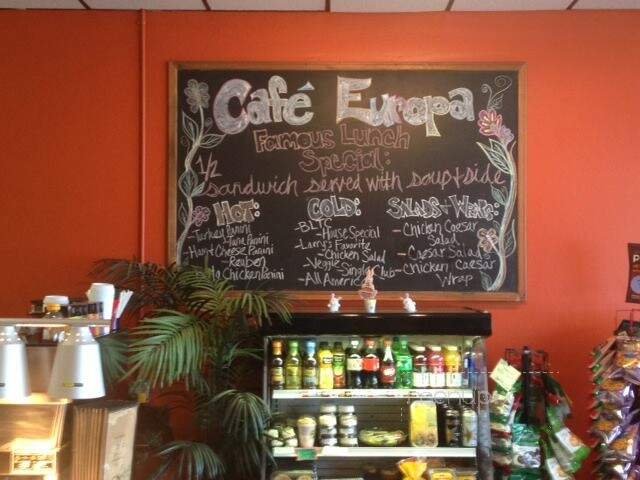 Café Europa
Famous Lunch
Special:
1/2
Sandwich served with soup + side
HOT:
- Turkey Panini
- Tuna Panini
- Ham + Cheese Panini
- Reuben
Chicken Panini
COLD:
- BLTC
- House Special
- Larry's Favorite
- Chicken Salad
- Veggie
- Single Club
- All American
SALADS + WRAPS:
- Chicken Caesar
Salad
- Caesar Salad
- Chicken Caesar
Wrap